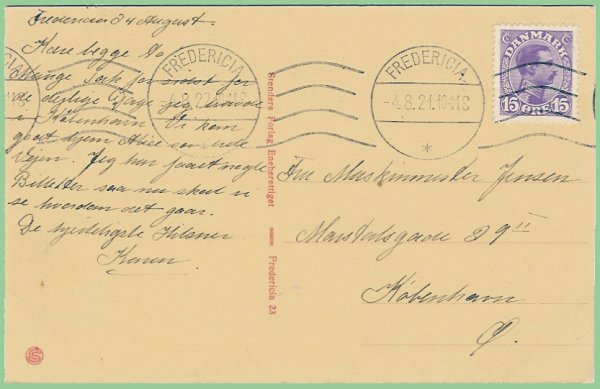 Fredericia d 4 August.
Kære begge To
Mange Tak for sidst for
de dejlige Dage jeg havde
i København Vi kom
godt hjem Alice sov hele
Vejen. Jeg har faaet nogle
Billetter saa nu skal vi
se hvordan det gaar.
De kjærligste Hilsner
Karen
FREDERICIA
FREDERICIA
-4.8.21.10-11.S
*
DANMARK
15 ØRE 15
Stenders Forlag Eneberettiget
Fredericia 23
Fru Maskinmester Jensen
Marstalsgade 29 II
København
Ø.
S